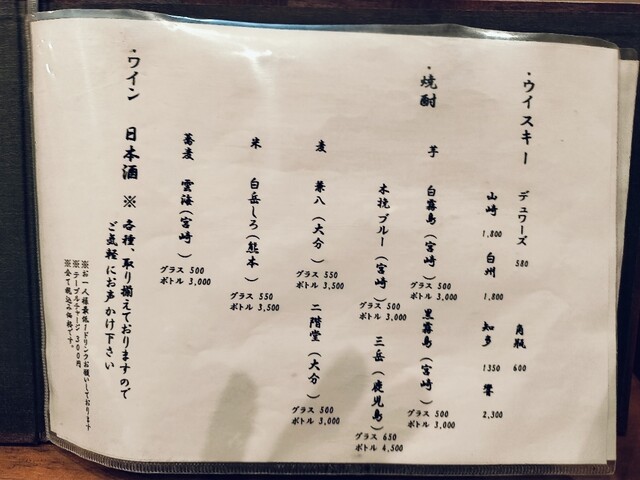 ・ウイスキー
デュワーズ 580 角瓶 600
山崎 1,800 白州 1,800 知多 1350 響 2,300
・焼酎
芋 白霧島(宮崎) グラス 500 ボトル 3,000 黒霧島(宮崎) グラス 500 ボトル 3,000
木挽ブルー(宮崎) グラス 500 ボトル 3,000 三岳(鹿児島) グラス 650 ボトル 4,500
麦 兼八(大分) グラス 550 ボトル 3,500 二階堂(大分) グラス 500 ボトル 3,000
米 白岳しろ(熊本) グラス 550 ボトル 3,500
蕎麦 雲海(宮崎) グラス 500 ボトル 3,000
・ワイン 日本酒 ※各種、取り揃えておりますので
ご気軽にお声かけ下さい
※お一人様最低1ドリンクお願いしております
※テーブルチャージ300円
※全て税込み価格です。